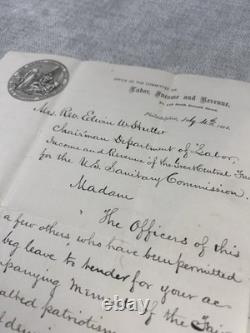 OFFICE OF THE COMMITTEE ON
Labor, Income and Revenue,
No. 118 South Seventh Street,
Philadelphia, July 4th, 1864.
Mrs. Rev. Edwin W. Hutter
Chairman Department of Labor,
Income and Revenue of the Great Central Fair
for the U.S. Sanitary Commission.
Madam
The Officers of this
a few others who have been permitted
beg leave to tender for your ac-
companying Memento of the Fair
patriotism